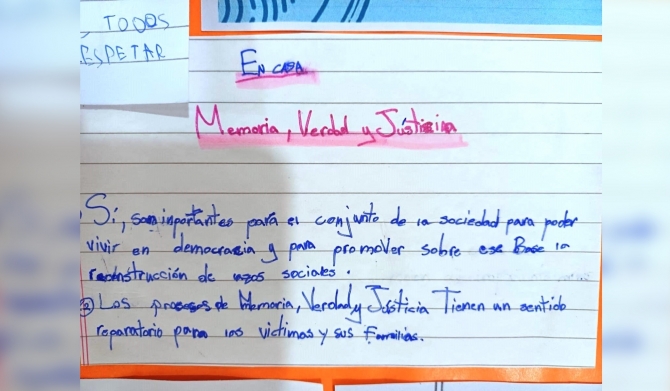 , TODOS
ESPETAR
En casa
Memoria, Verdad y Jústicia
Sí, son inportantes para el conjunto de la sociedad para poder
vivir en democracia y para promover sobre ese Base la
reconstrucción de lazos sociales.
② Los procesos de Memoria, Verdad y Jústicia Tienen un sentido
reparatorio para los victimas y sus Familias.